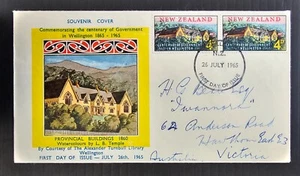 SOUVENIR COVER
Commemorating the centenary of Government
in Wellington 1865 - 1965
PROVINCIAL BUILDINGS 1865
Watercolours by L. B. Temple
By Courtesy of The Alexander Turnbull Library
Wellington
FIRST DAY OF ISSUE — JULY 26th, 1965
NEW ZEALAND
4d
NEW ZEALAND
4d
N.Z.
26 JULY 1965
FIRST DAY OF ISSUE
H G
62 Anderson Road
Hawthorn East E3
Victoria
Australia